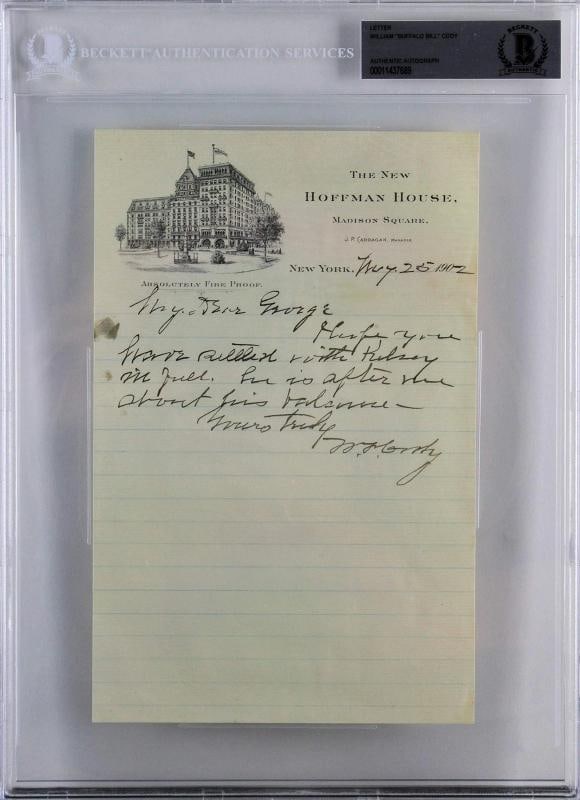 BECKETT AUTHENTICATION SERVICES
LETTER
WILLIAM "BUFFALO BILL" CODY
AUTHENTIC AUTOGRAPH
00011437689
BECKETT
B
AUTHENTICATED
THE NEW
HOFFMAN HOUSE,
MADISON SQUARE,
J. P. CADDAGAN, MANAGER
NEW YORK, 25 1902
ABSOLUTELY FIRE PROOF.
My Dear George
I hope you
have settled with Kelsey
in full. he is after me
about his balance—
Yours truly
W.F. Cody